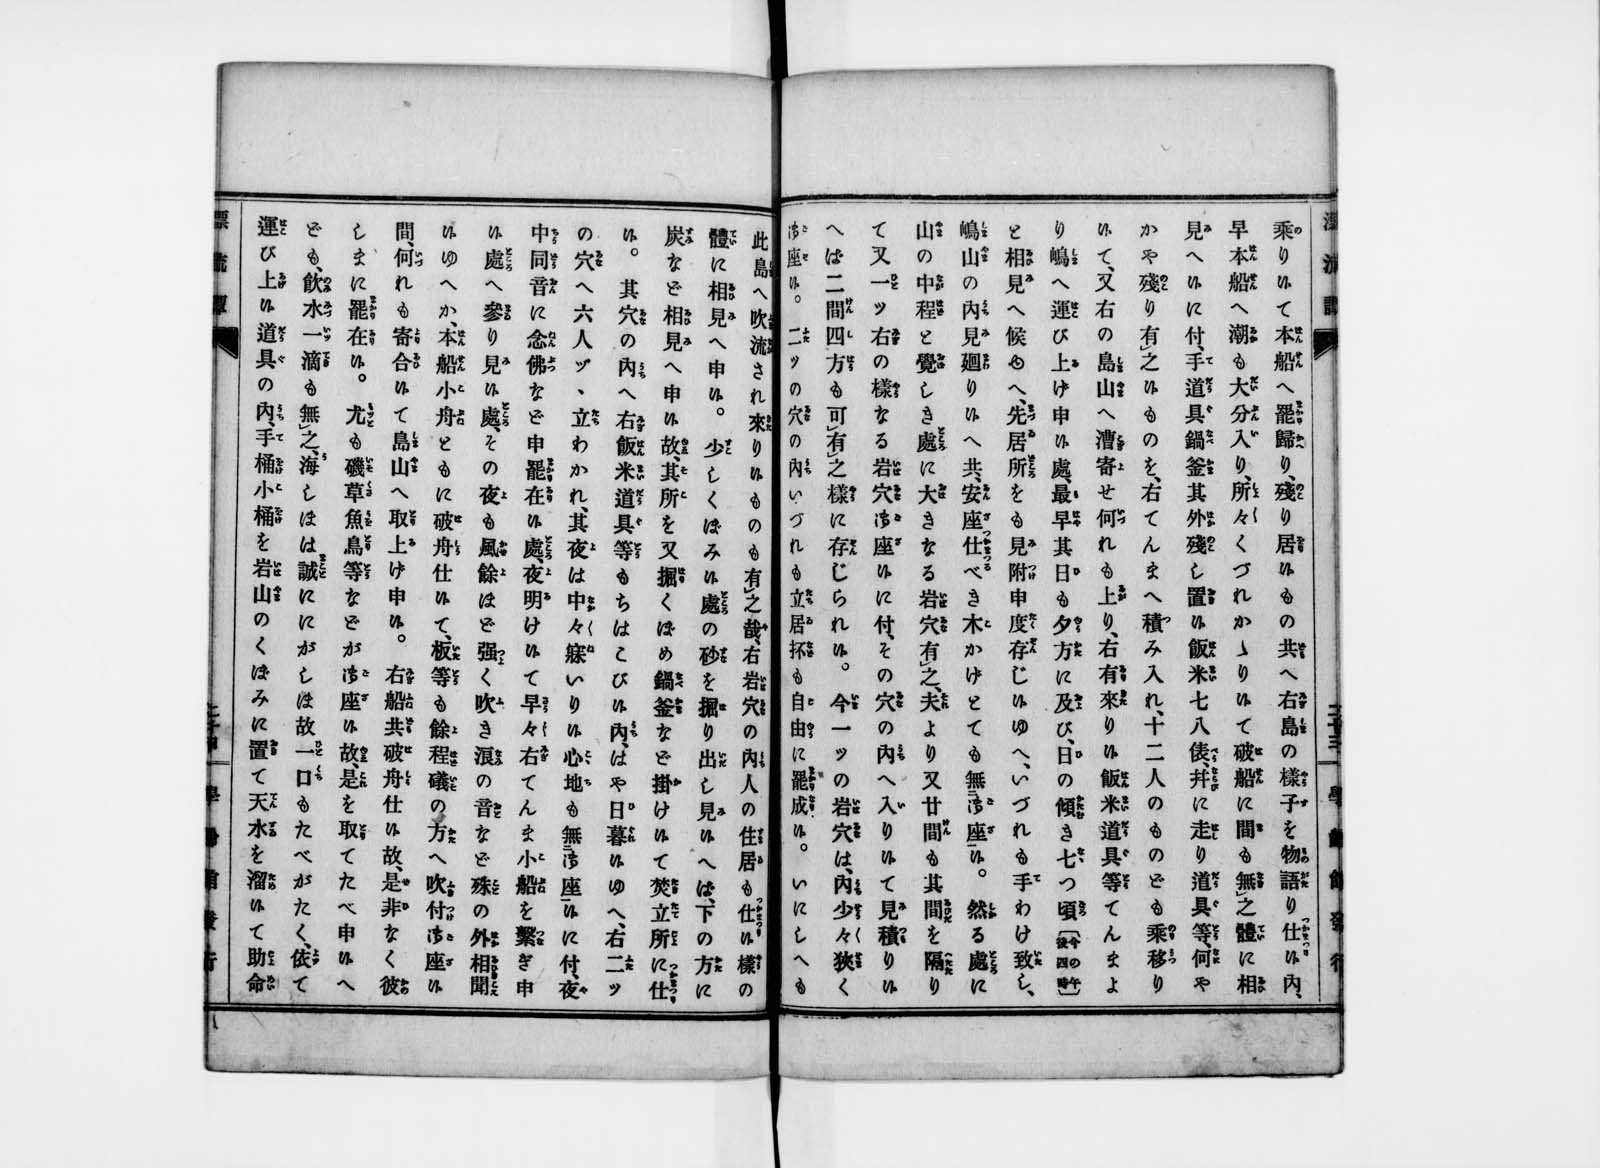 漂流譚
乘りいて本船へ罷歸り、殘り居いもの共へ右島の樣子を物語り仕い內、
早本船へ潮も大分入り、所々くづれかゝりいて破船に間も無之體に相
見へいに付、手道具鍋釜其外殘し置い飯米七八俵、幷に走り道具等、何や
かや殘り有之いものを、右てんまへ積み入れ、十二人のものども乘移り
いて、又右の島山へ漕寄せ何れも上り、右有來りい飯米道具等てんまよ
り嶋へ運び上げ申い處、最早其日も夕方に及び、日の傾き七つ頃〔今の午後四時〕
と相見へ候ゆへ、先居所をも見附申度存じいゆへ、いづれも手わけ致し、
嶋山の內見廻りいへ共、安座仕べき木かげとても無御座い。然る處に
山の中程と覺しき處に大きなる岩穴有之、夫より又廿間も其間を隔り
て又一ッ右の樣なる岩穴御座いに付、その穴の內へ入りいて見積りい
へば二間四方も可有之樣に存じられい。今一ッの岩穴は、內少々狹く
御座い。二ッの穴の內いづれも立居抔も自由に罷成い。いにしへも
二十三
學齡館發行
此島へ吹流され來りいものも有之哉、右岩穴の內人の住居も仕い樣の
體に相見へ申い。少しくぼみい處の砂を掘り出し見いへば、下の方に
炭など相見へ申い故、其所を又掘くぼめ鍋釜など掛けいて焚立所に仕
い。其穴の內へ右飯米道具等もちはこびい內、はや日暮いゆへ、右二ッ
の穴へ六人ヅヽ立わかれ、其夜は中々寐いりい心地も無御座いに付、夜
中同音に念佛など申罷在い處、夜明けいて早々右てんま小船を繫ぎ申
い處へ參り見い處、その夜も風餘ほど强く吹き浪の音など殊の外相聞
いゆへか、本船小舟ともに破舟仕いて、板等も餘程礒の方へ吹付御座い
間、何れも寄合いて島山へ取上げ申い。右船共破舟仕い故、是非なく彼
しまに罷在い。尤も磯草魚鳥等などが御座い故、是を取てたべ申いへ
ども、飮水一滴も無之、海しほは誠ににがしほ故一口もたべがたく、依て
運び上い道具の內、手桶小桶を岩山のくぼみに置て天水を溜いて助命
漂流譚
二十四
學齡館發行